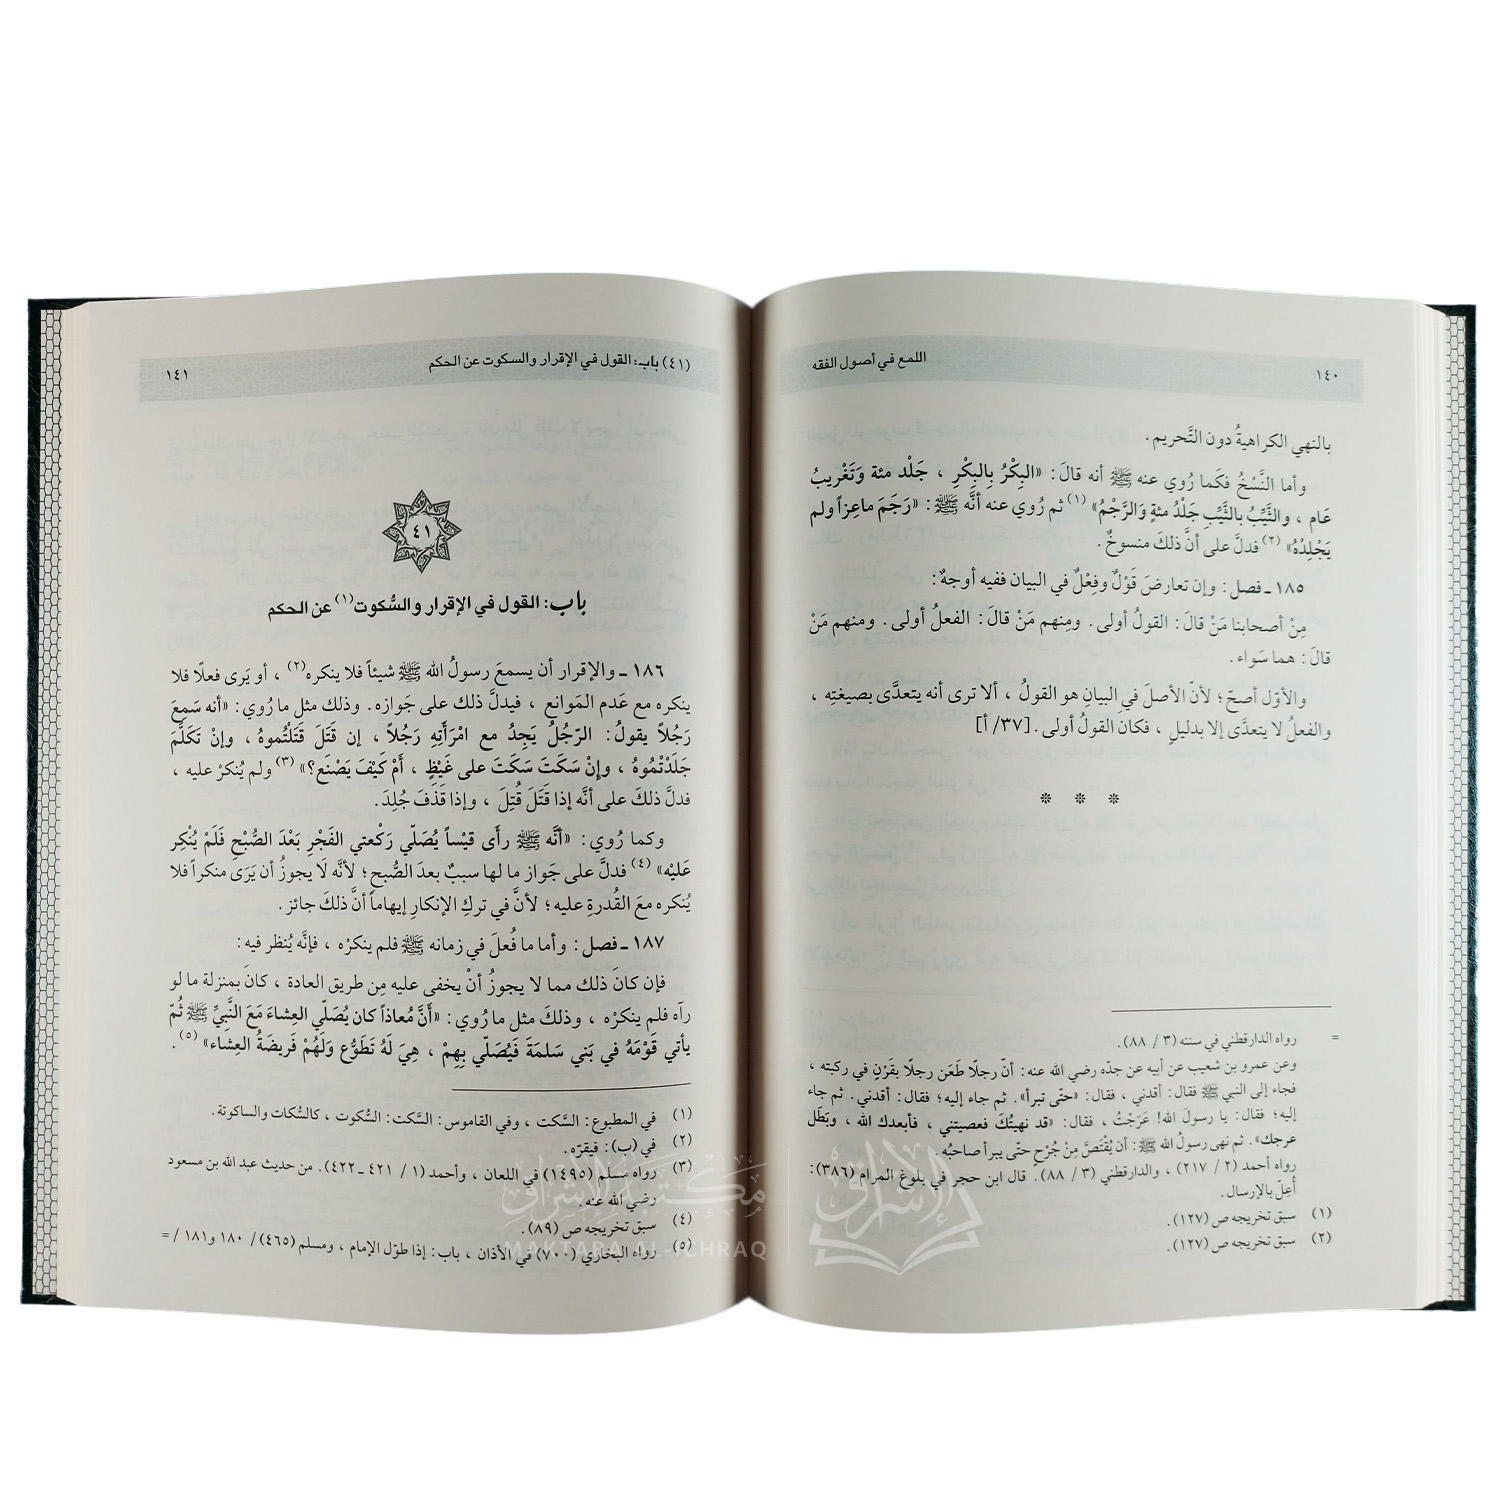 اللمع في أصول الفقه
١٤٠
بالنهي الكراهيةُ دون التَّحريم.
وأما النَّسْخُ فكَما رُوي عنه ﷺ أنه قالَ: «البِكْرُ بِالبِكْرِ ، جَلْد مئة وَتَغْريبُ
عَام ، والثَّيِّبُ بالثَّيِّبِ جَلْدُ مئةٍ وَالرَّجْمُ»(١) ثم رُوي عنه أنَّه ﷺ: «رَجَمَ ماعِزاً ولم
يَجْلِدْهُ»(٢) فدلَّ على أنَّ ذلكَ منسوخٌ.
١٨٥ ـ فصل: وإن تعارضَ قَوْلٌ وفِعْلٌ في البيان ففيه أوجهٌ:
مِنْ أصحابنا مَنْ قالَ: القولُ أولى. ومِنهم مَنْ قالَ: الفعلُ أولى. ومنهم مَنْ
قالَ: هما سَواء.
والأوّل أصحّ؛ لأنّ الأصلَ في البيانِ هو القولُ ، ألا ترى أنه يتعدَّى بصيغتِه ،
والفعلُ لا يتعدَّى إلا بدليلٍ ، فكان القولُ أولى. [٣٧/ أ]
* * *
= رواه الدارقطني في سننه (٣ / ٨٨).
وعن عمرو بن شعيب عن أبيه عن جدّه رضي الله عنه: أنّ رجلًا طَعَن رجلًا بقَرْنٍ في ركبته ،
فجاء إلى النبي ﷺ فقال: أقدني ، فقال: «حتّى تبرأ». ثم جاء إليه؛ فقال: أقدني. ثم جاء
إليه؛ فقال: يا رسولَ الله! عَرَجْتُ ، فقال: «قد نهيتُكَ فعصيتني ، فأبعدك الله ، وبَطَل
عرجك». ثم نهى رسولُ الله ﷺ: أن يُقْتَصَّ مِنْ جُرْحٍ حتّى يبرأ صاحبُه.
رواه أحمد (٢ / ٢١٧) ، والدارقطني (٣ / ٨٨). قال ابن حجر في بلوغ المرام (٣٨٦):
أُعِلّ بالإرسال.
(١) سبق تخريجه ص (١٢٧).
(٢) سبق تخريجه ص (١٢٧).
(٤١) باب: القول في الإقرار والسكوت عن الحكم
١٤١
٤١
باب: القول في الإقرار والسُّكوت(١) عن الحكم
١٨٦ ـ والإقرار أن يسمعَ رسولُ الله ﷺ شيئاً فلا ينكره(٢) ، أو يَرى فعلًا فلا
ينكره مع عَدم المَوانع ، فيدلّ ذلك على جَوازه. وذلك مثل ما رُوي: «أنه سَمِعَ
رَجُلاً يقولُ: الرّجُلُ يَجِدُ مع امْرَأَتِهِ رَجُلاً ، إن قَتَلَ قَتَلْتُموهُ ، وإنْ تَكَلَّمَ
جَلَدْتُمُوهُ ، وإنْ سَكَتَ سَكَتَ على غَيْظٍ ، أمْ كَيْفَ يَصْنَع؟»(٣) ولم يُنكرْ عليه ،
فدلَّ ذلكَ على أنَّه إذا قتَلَ قُتِلَ ، وإذا قَذَفَ جُلِدَ.
وكما رُوي: «أنَّه ﷺ رأى قيْساً يُصَلّي رَكْعتي الفَجْرِ بَعْدَ الصُّبْحِ فَلَمْ يُنْكِر
عَليْه»(٤) فدلَّ على جَواز ما لها سببٌ بعدَ الصُّبح؛ لأنَّه لَا يجوزُ أن يَرَى منكراً فلا
يُنكره معَ القُدرةِ عليه؛ لأنَّ في تركِ الإنكارِ إيهاماً أنَّ ذلكَ جائز.
١٨٧ ـ فصل: وأما ما فُعلَ في زمانه ﷺ فلم ينكرْه ، فإنَّه يُنظر فيه:
فإن كانَ ذلك مما لا يجوزُ أنْ يخفى عليه مِن طريق العادة ، كانَ بمنزلة ما لو
رآه فلم ينكرْه ، وذلكَ مثل ما رُوي: «أَنَّ مُعاذاً كان يُصَلّي العِشاءَ مَعَ النَّبيِّ ﷺ ثُمّ
يأتي قَوْمَهُ في بَني سَلمَةَ فَيُصَلّي بِهِمْ ، هِيَ لَهُ تَطَوُّع وَلَهُمْ فَريضَةُ العِشاء»(٥).
(١) في المطبوع: السَّكت ، وفي القاموس: السَّكت: السُّكوت ، كالسُّكات والساكوتة.
(٢) في (ب): فيقرّه.
(٣) رواه مسلم (١٤٩٥) في اللعان ، وأحمد (١ / ٤٢١ ـ ٤٢٢). من حديث عبد الله بن مسعود
رضي الله عنه.
(٤) سبق تخريجه ص (٨٩).
(٥) رواه البخاري (٧٠٠) في الأذان ، باب: إذا طوّل الإمام ، ومسلم (٤٦٥)/ ١٨٠ و١٨١ / =
مكتبة الإشراق
MAKTABA AL-ICHRAQ
الإشراق